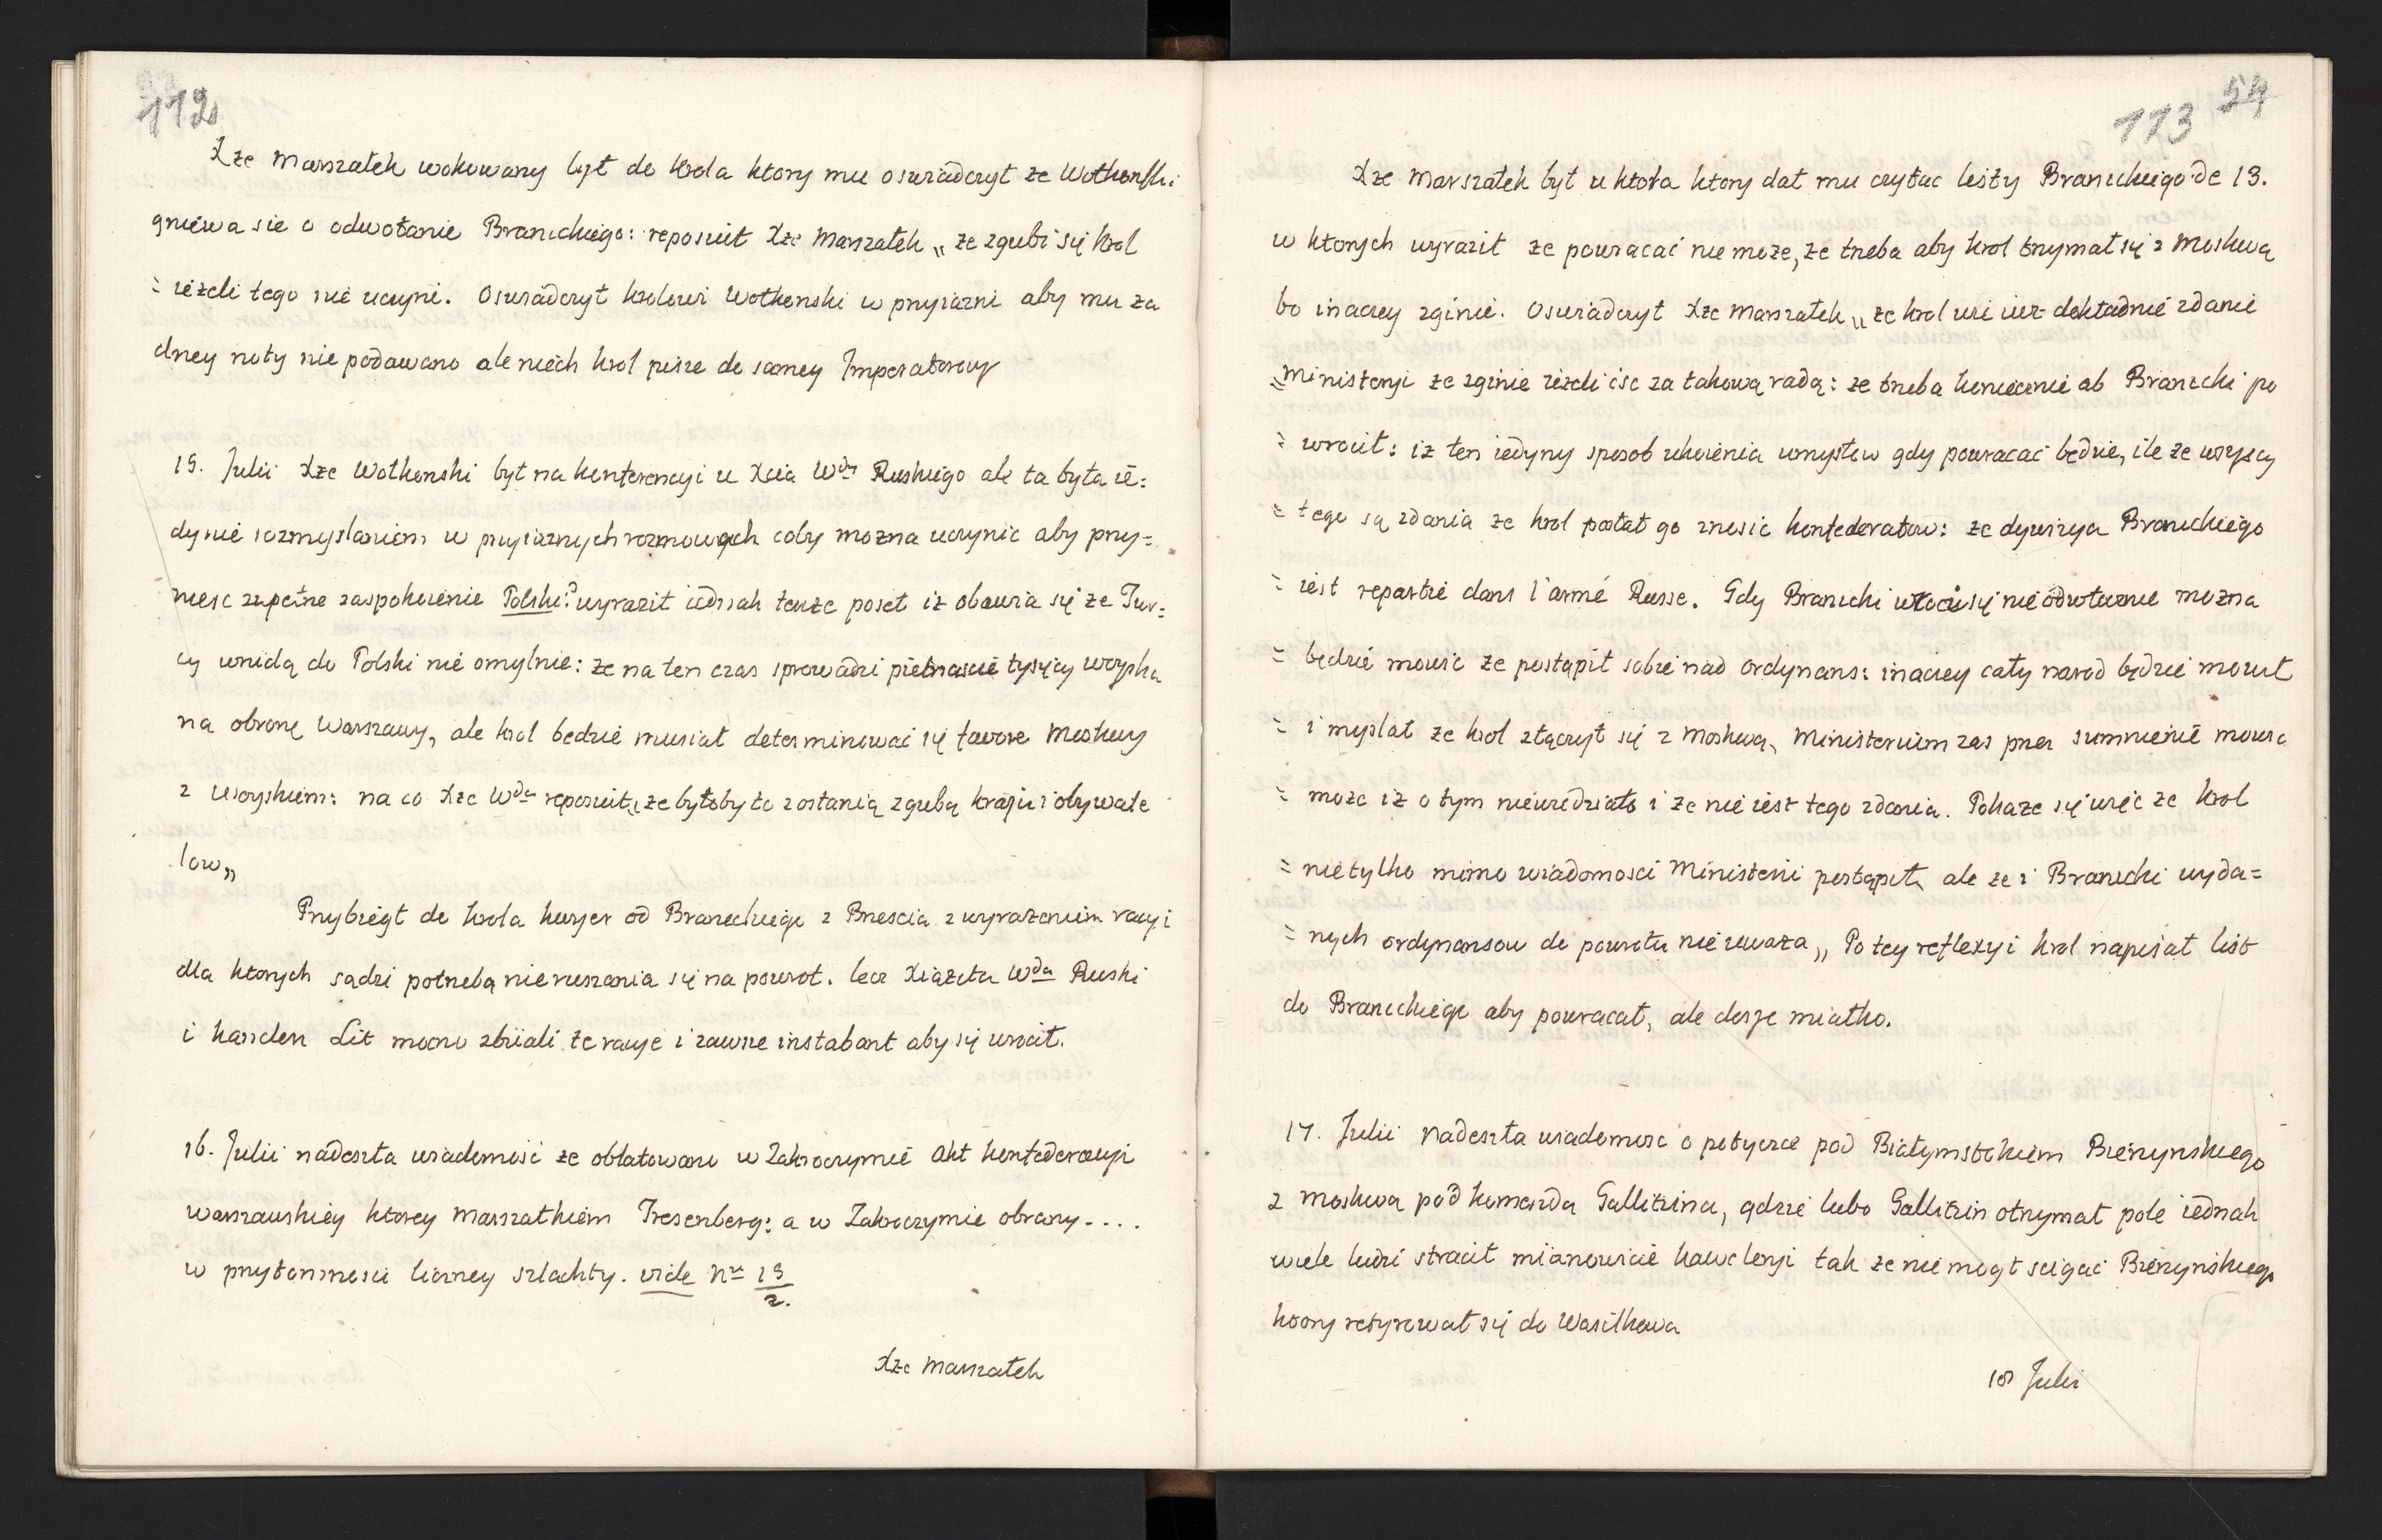 112
Xze Marszałek wokowany był do krola ktory mu oswiadczył ze Wołkonski
gniewa sie o odwołanie Branickiego: reposuit Xze Marszałek „ ze zgubi się krol
= iezeli tego nie uczyni. Oswiadczył krolowi Wołkonski w przyiazni aby mu za
dney noty nie podawano ale niech krol pisze do samey Imperatorowy
15. Julii Xze Wołkonski był na konferencyi u Xcia Wdy Ruskiego ale ta była ie=
dynie rozmyslaniem w przyiaznych rozmowach coby mozna uczynic aby przy=
niesc zupełne zaspokoienie Polski: wyraził iednak tenze poseł iz obawia się ze Tur=
cy wnidą do Polski nie omylnie: ze na ten czas sprowadzi pietnascie tysięcy woyska
na obronę Warszawy, ale krol będzie musiał determinować się favore Moskwy
z woyskiem: na co Xze Wda reposuit „ ze byłoby to zostanią zgubą kraju i obywate
low „
Przybiegł do krola kuryer od Branickiego z Brzescia z wyrazeniem racyi
dla ktorych sądzi potrzebą nieruszania się na powrot. lecz Xiązęta Wda Ruski
i kanclerz Lit mocno zbiiali te racye i zawsze instabant aby się wrocił.
16. Julii nadeszła wiadomość ze oblatowano w Zakroczymie Akt konfederacyi
warszawskiey ktorey marszałkiem Tresenberg: a w Zakroczymie obrany - - - .
w przytomnosci liczney szlachty. vide Nr 19/2.
Xze Marszałek
113 54
Xze Marszałek był u krola ktory dał mu czytac listy Branickiego de 13.
w ktorych wyraził ze powracać nie moze, ze trzeba aby krol trzymał się z Moskwą
bo inaczey zginie. Oswiadczył Xze Marszałek „ ze krol wie iuz dokładnie zdanie
„ Ministeryi ze zginie iezeli isc za takową radą: ze trzeba koniecznie ab Branicki po
= wrocił: iz ten iedyny sposob ukoienia umysłow gdy powracać będzie, ile ze wszyscy
= tego są zdania ze krol posłał go znosić konfederatow: ze dywizya Branickiego
= iest repartie dans l'armé Russe. Gdy Branicki wroci się nieodwłocznie mozna
= będzie mowić ze postąpił sobie nad ordynans: inaczey cały narod będzie mowił
= i myslał ze krol złączył się z Moskwą, Ministerium zas przez sumnienie mowic
= moze iz o tym niewiedziało i ze nie iest tego zdania. Pokaze się więc ze krol
= nietylko mimo wiadomosci Ministerii postąpił, ale ze i Branicki wyda=
= nych ordynansow do powrotu nie uwaza „ Po tey reflexyi krol napisał list
do Branickiego aby powracał, ale dosyc miałko.
17. Julii Nadeszła wiadomosc o potyczce pod Białymstokiem Bierzynskiego
z Moskwą pod komendą Gallitzina, gdzie lubo Gallitzin otrzymał pole iednak
wiele ludzi stracił mianowicie kawaleryi tak ze nie mogł scigać Bierzynskiego
ktory retyrował się do Wasilkowa
18 Julii